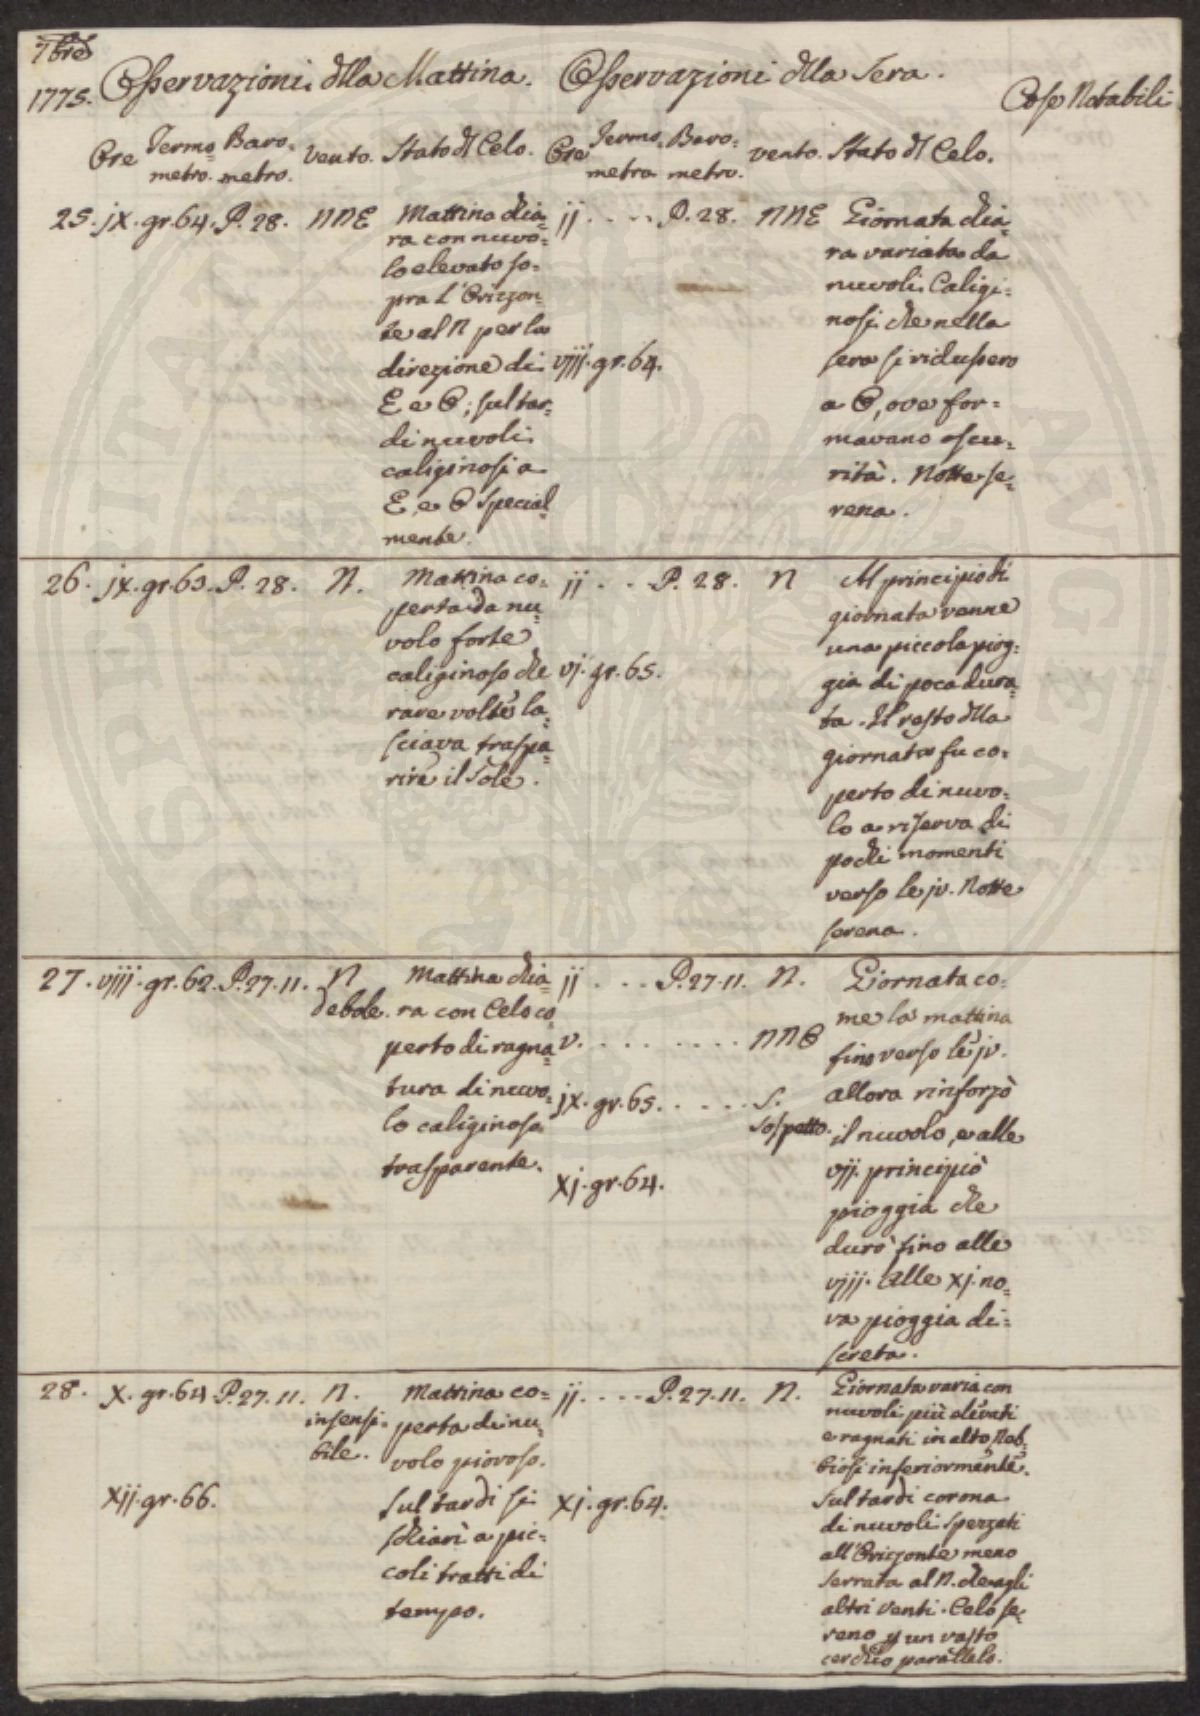 7bre
1775. Osservazioni dlla Mattina. Osservazioni dlla Sera. Cose Notabili
Ore Termo= Baro= Vento. Stato dl Celo. Ore Termo. Baro= vento. Stato dl Celo.
metro. metro. metro metro.
25. jx. gr. 64. P. 28. NNE Mattina chia=
ra con nuvo=
lo elevato so=
pra l'Orizzon=
te al N per la
direzione di
E e O; sul tar=
di nuvoli
caliginosi a
E, e O special=
mente.
jj . . . . P. 28. NNE Giornata chia=
ra variata da
nuvoli Caligi=
nosi che nella
viij. gr. 64. sera si ridussero
a O, ove for=
mavano oscu=
rità. Notte se=
rena.
26. jx. gr. 63. P. 28. N. Mattina co=
perta da nu=
volo forte
caliginoso che
rare volte la=
sciava traspa=
rire il Sole.
jj . . . P. 28. N Al principio di
giornata venne
una piccola piog=
vj. gr. 65. gia di poca dura=
ta. Il resto dlla
giornata fu co=
perto di nuvo=
lo a riserva di
pochi momenti
verso le jv. Notte
serena.
27. viij. gr. 62. P. 27. 11. N Mattina chia=
debole. ra con Celo co=
perto di ragna=
tura di nuvo=
lo caliginoso
trasparente.
jj . . . . P. 27. 11. N. Giornata co=
me la mattina
v. . . . . . . . . NNO fino verso le jv.
jx. gr. 65. . . . . . S. allora rinforzò
sospetto. il nuvolo, e alle
xj. gr. 64. vij. principiò
pioggia che
durò fino alle
viij. Alle xj. no=
va pioggia di=
screta.
28. x. gr. 64 P. 27. 11. N. Mattina co=
insensi= perta di nu=
bile. volo piovoso.
xij. gr. 66. Sul tardi si
schiarì a pic=
coli tratti di
tempo.
jj . . . . P. 27. 11. N. Giornata varia con
nuvoli più elevati
e ragnati in alto, Neb=
biosi inferiormente.
xj. gr. 64. Sul tardi corona
di nuvoli spezzati
all'Orizzonte meno
serrata al N. che agli
altri venti. Celo se=
reno p un vasto
cerchio parallelo.